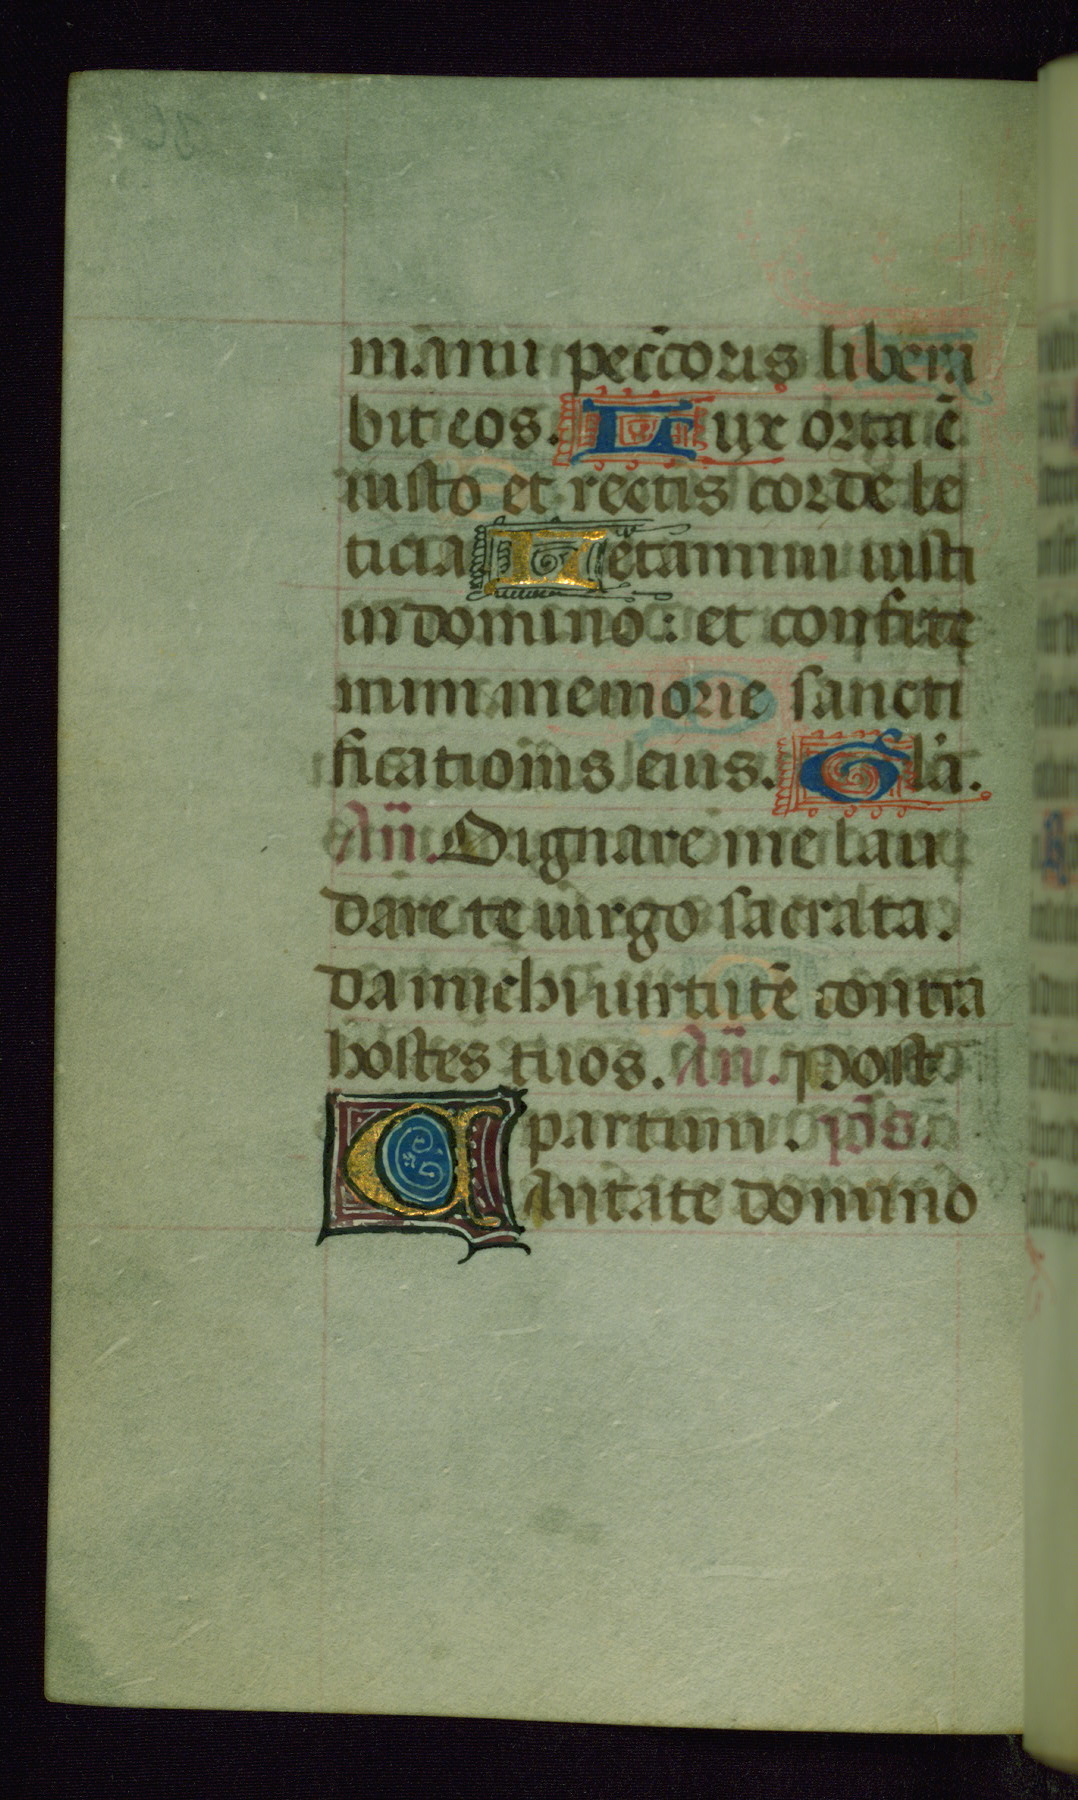 manu pecc̄oris libera
bit eos. Lux orta ē
iusto et rectis corde le
ticia Letamini iusti
in domino: et confite
mini memorie sancti
ficationis eius. Gl'a.
Añ. Dignare me lau
dare te uirgo sacrata.
da michi uirtutē contra
hostes tuos. Añ. Post
partum. p̄s.
Cantate domino